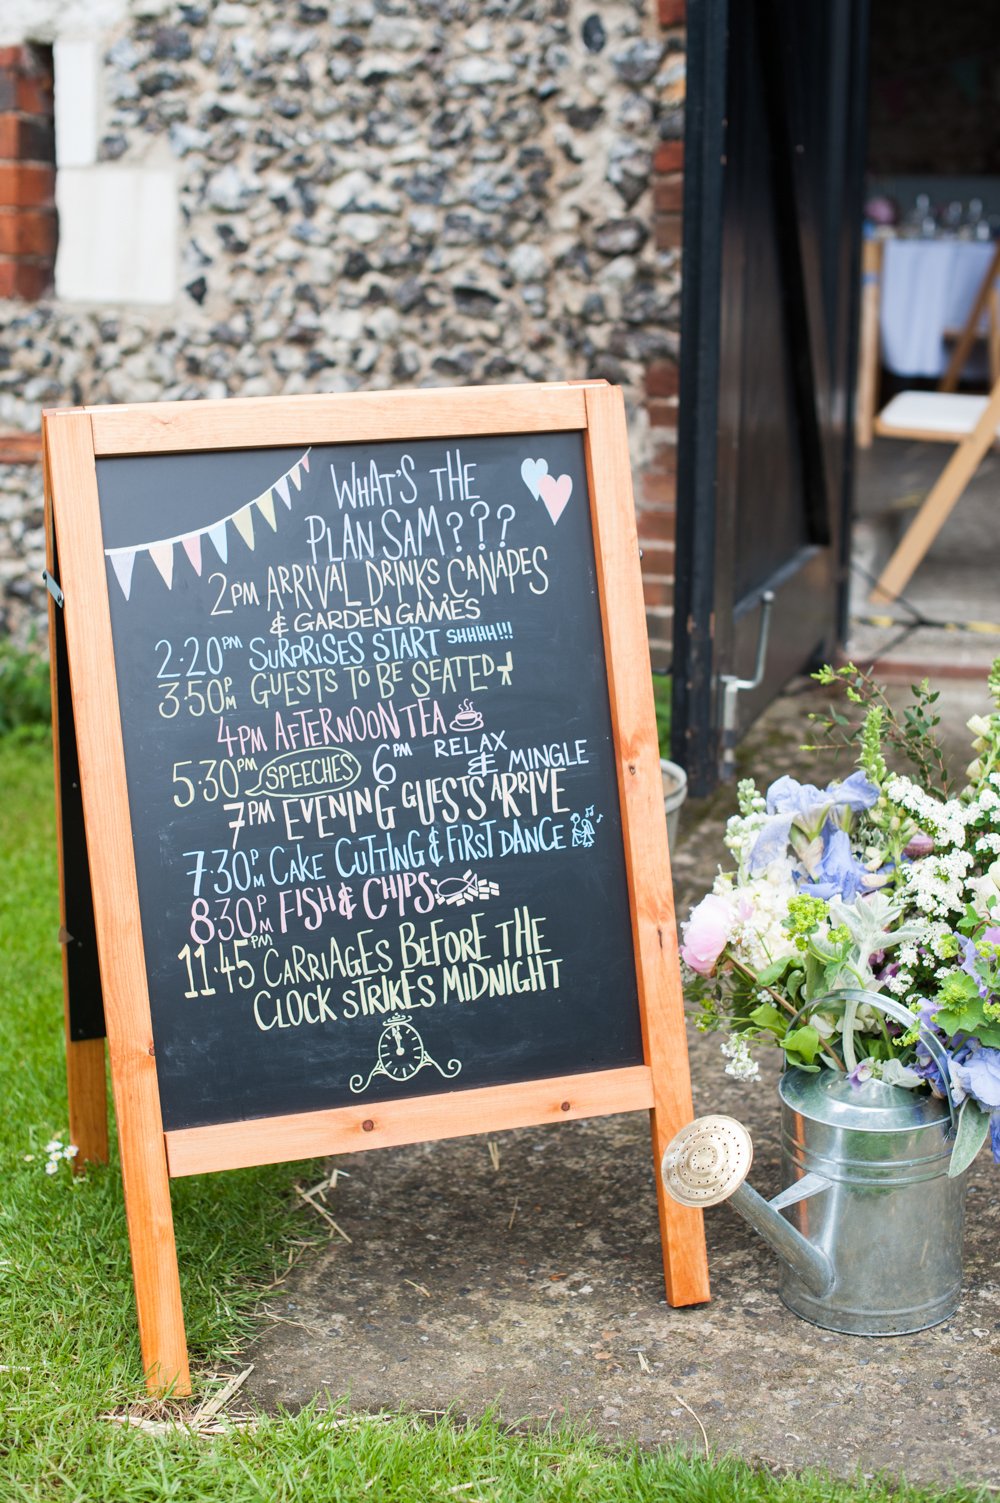 WHAT'S THE
PLAN SAM???
2PM ARRIVAL DRINKS, CANAPES
& GARDEN GAMES
2.20PM SURPRISES START SHHHH!!!
3.50PM GUESTS TO BE SEATED
4PM AFTERNOON TEA
5.30PM SPEECHES 6PM RELAX
& MINGLE
7PM EVENING GUESTS ARRIVE
7.30PM CAKE CUTTING & FIRST DANCE
8.30PM FISH & CHIPS
11.45PM CARRIAGES BEFORE THE
CLOCK STRIKES MIDNIGHT